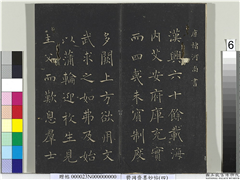 唐褚河南書
漢興六十餘載海
內艾安府庫充實
而四夷未賓制度
多闕上方欲用文
武求之如弗及始
以蒲輪迎枚生見
主父而歎息群士
6